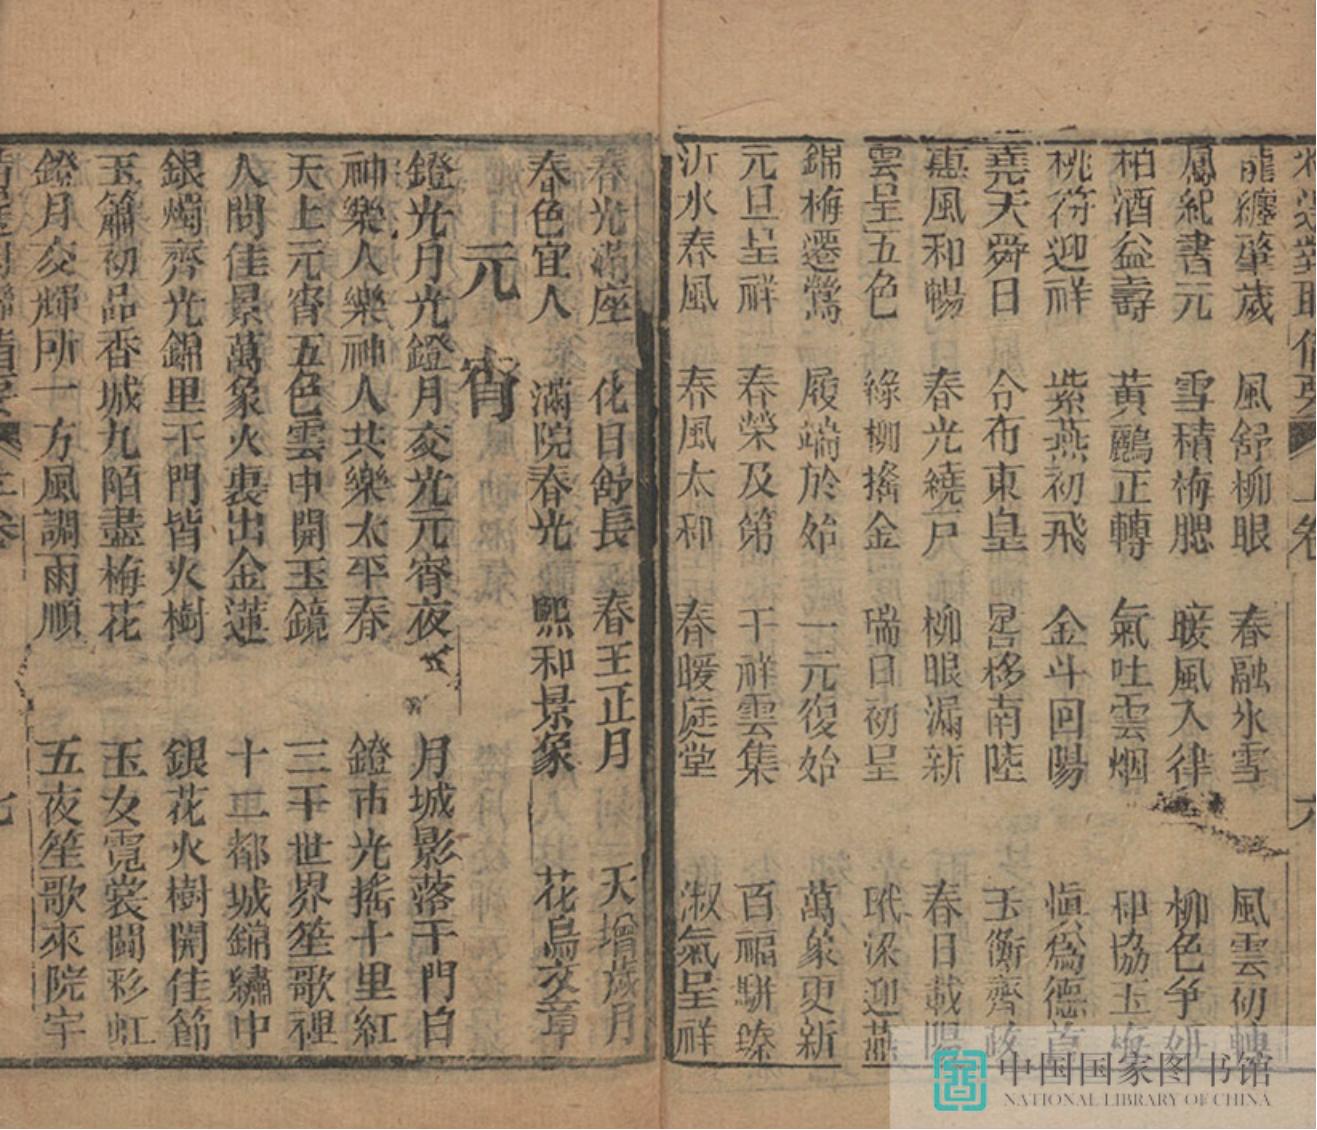 龍纏肇歲 風舒柳眼 春融氷雪 風雲初轉
鳳紀書元 雪積梅腮 暖風入律 柳色争妍
柏酒益壽 黃鸝正轉 氣吐雲烟 和協玉梅
桃符迎祥 紫燕初飛 金斗回陽 慎爲德首
堯天舜日 令布東皇 晷移南陸 玉衡齊政
惠風和暢 春光繞戶 柳眼漏新 春日載陽
雲呈五色 綠柳搖金 瑞日初呈 玳梁迎燕
錦梅遷鶯 履端於始 一元復始 萬象更新
元旦呈祥 春榮及第 千祥雲集 百福駢臻
沂水春風 春風太和 春暖庭堂 淑氣呈祥
春光滿座 化日舒長 春王正月 天增歲月
春色宜人 滿院春光 熙和景象 花鳥文章
元宵
鐙光月光鐙月交光元宵夜 月城影落千門白
神樂人樂神人共樂太平春 鐙市光搖十里紅
天上元宵五色雲中開玉鏡 三千世界笙歌裡
人間佳景萬象火裏出金蓮 十二都城錦繡中
銀燭齊光錦里千門皆火樹 銀花火樹開佳節
玉簫初品香城九陌盡梅花 玉女霓裳鬪彩虹
鐙月交輝所一方風調雨順 五夜笙歌來院宇
上卷
七
中国国家图书馆
NATIONAL LIBRARY OF CHINA